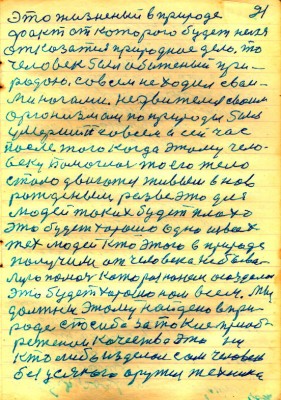 21
это жизненый в природе
факт от которого будет нельзя
отказатся природное дело, то
человек был обиженый при-
родою, совсем не ходил сваи-
ми ногами. не двигтелся своим
организмам по природи был
умерший совсем а сей час
после того когда этому чело-
веку помоглось то его тело
стало двигатся живым в нов
рожденным разве это для
людей таких будет плохо
это будет хорошо одно из вах
тех людей кто этого в природе
получили от человека небыва
лую помоч которая нам оказалась
это будет хорошо нам всем. Мы
должны этому найдено в при-
роде спасиба за такие приоб-
ретении качества это ни
кто либо изделал сам человек
без усякого оружия техники